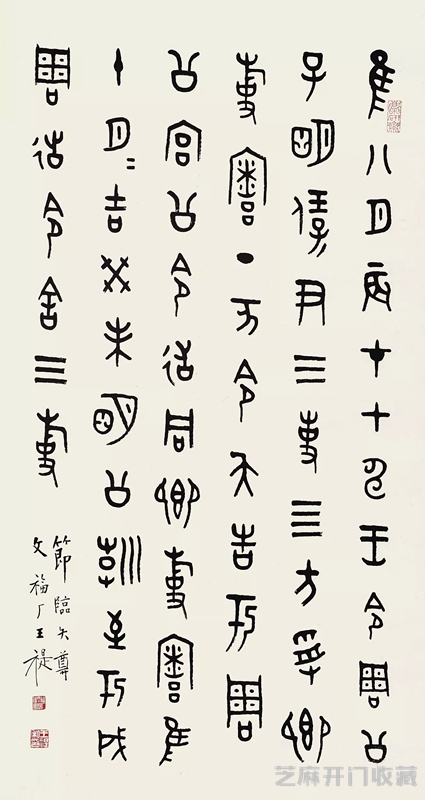 隹八月辰才甲申王令周公
子明保尹三事四方受卿
事寮丁亥令夨告于周
公宫公令徣同卿事寮隹
十月=吉癸未明公朝至于成
周徣令舍三事
節臨夨尊
文福厂王禔
芝麻开门收藏